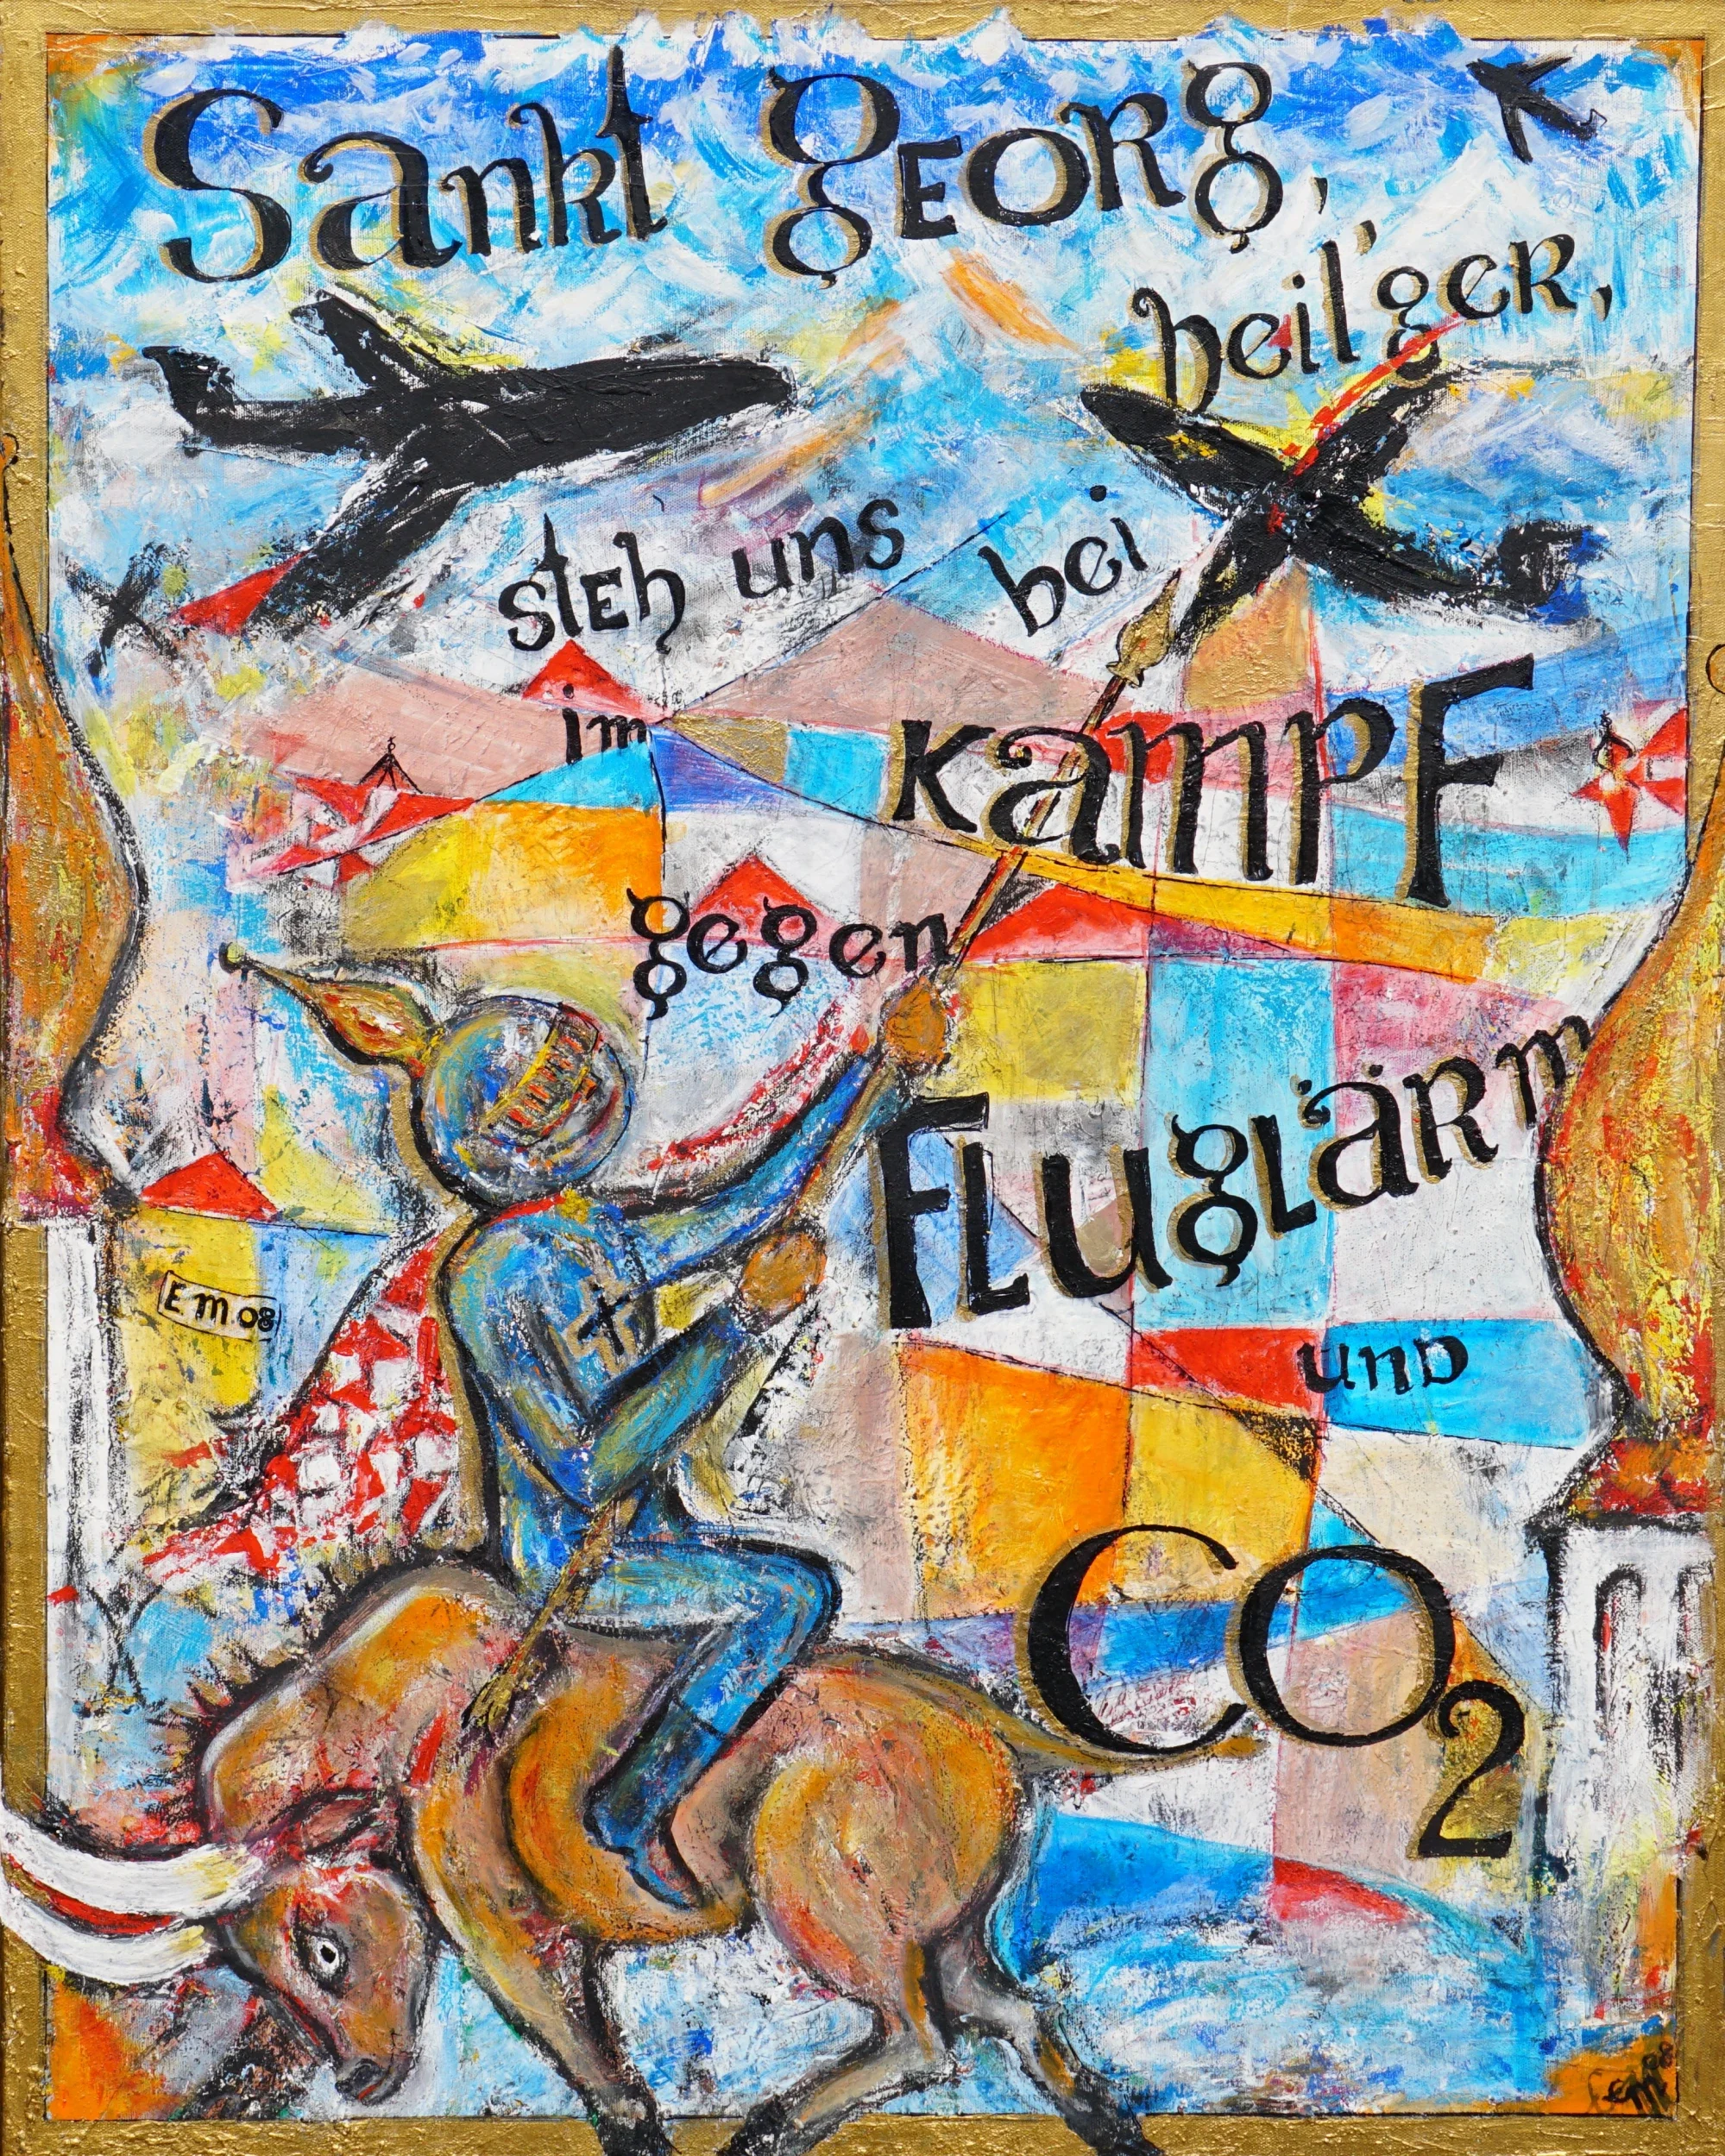 Sankt Georg,
heil'ger,
steh uns bei
im
Kampf
gegen
Fluglärm
und
E M 08
CO2